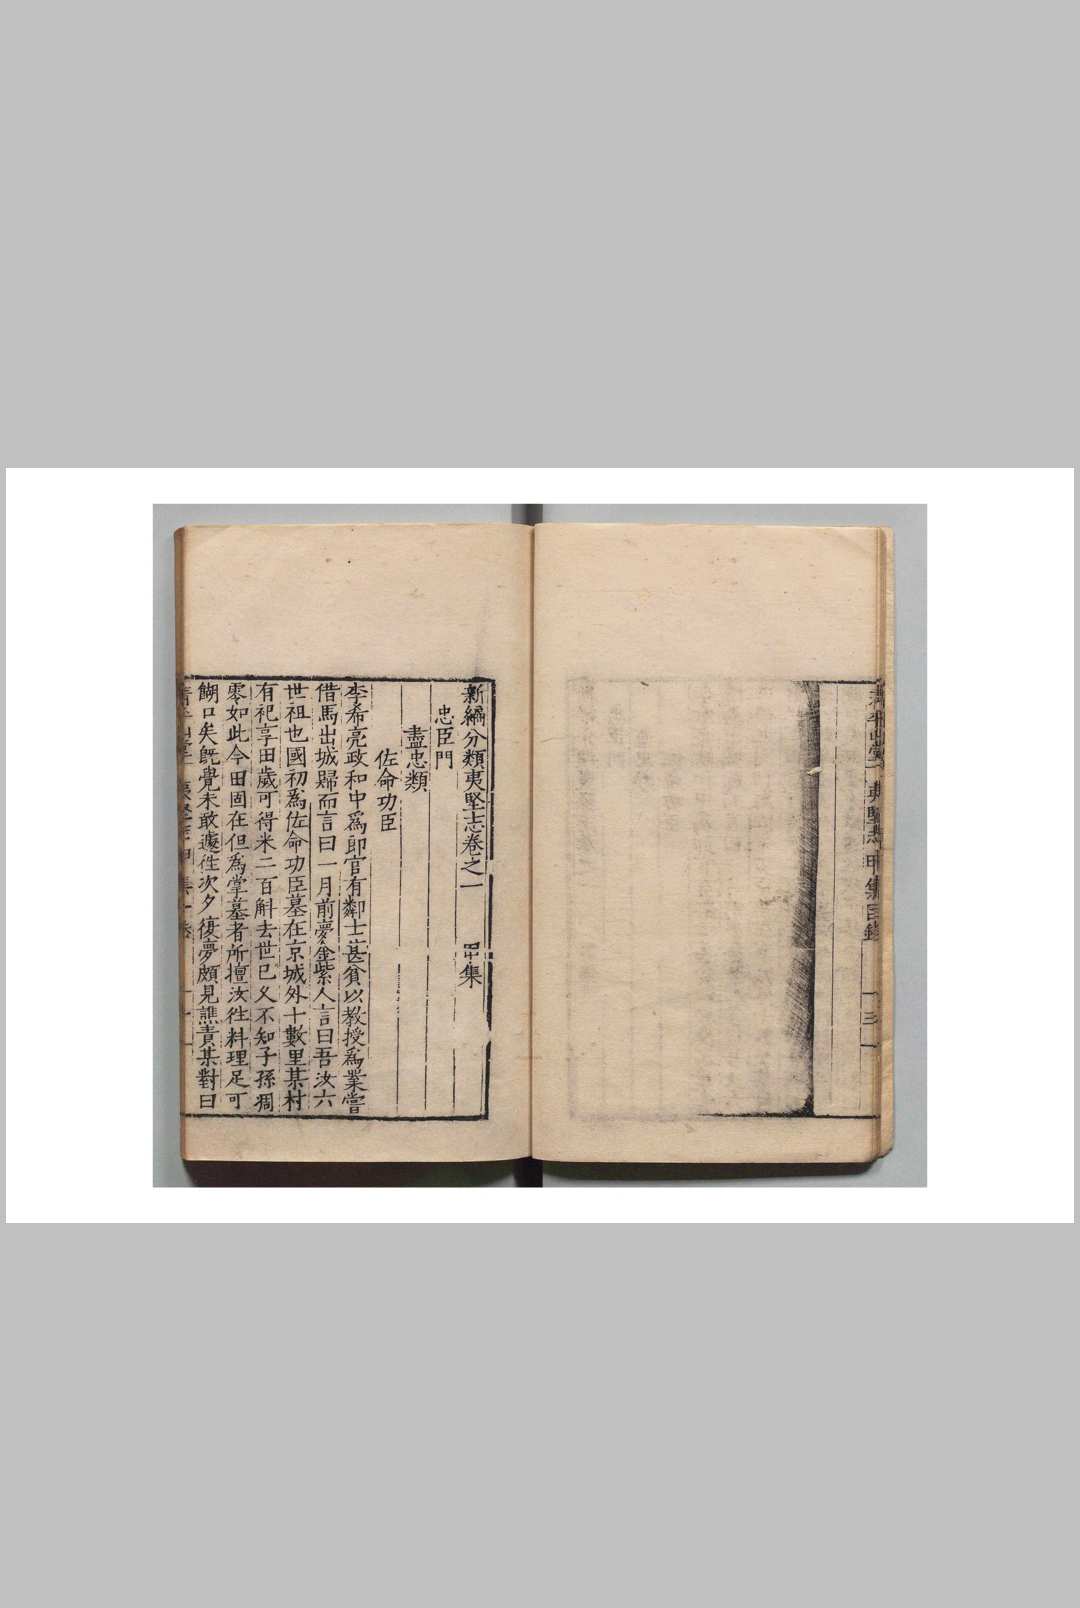 清平山堂 夷堅志甲集目錄 十三
新編分類夷堅志卷之一 甲集
忠臣門
盡忠類
佐命功臣
李希亮政和中爲郎官有鄰士甚貧以教授爲業嘗
借馬出城歸而言曰一月前夢金紫人言曰吾汝六
世祖也國初爲佐命功臣墓在京城外十數里某村
有祀享田歲可得米二百斛去世已久不知子孫凋
零如此今田固在但爲掌墓者所擅汝往料理足可
餬口矣既覺未敢遽往次夕復夢頗見譙責某對曰